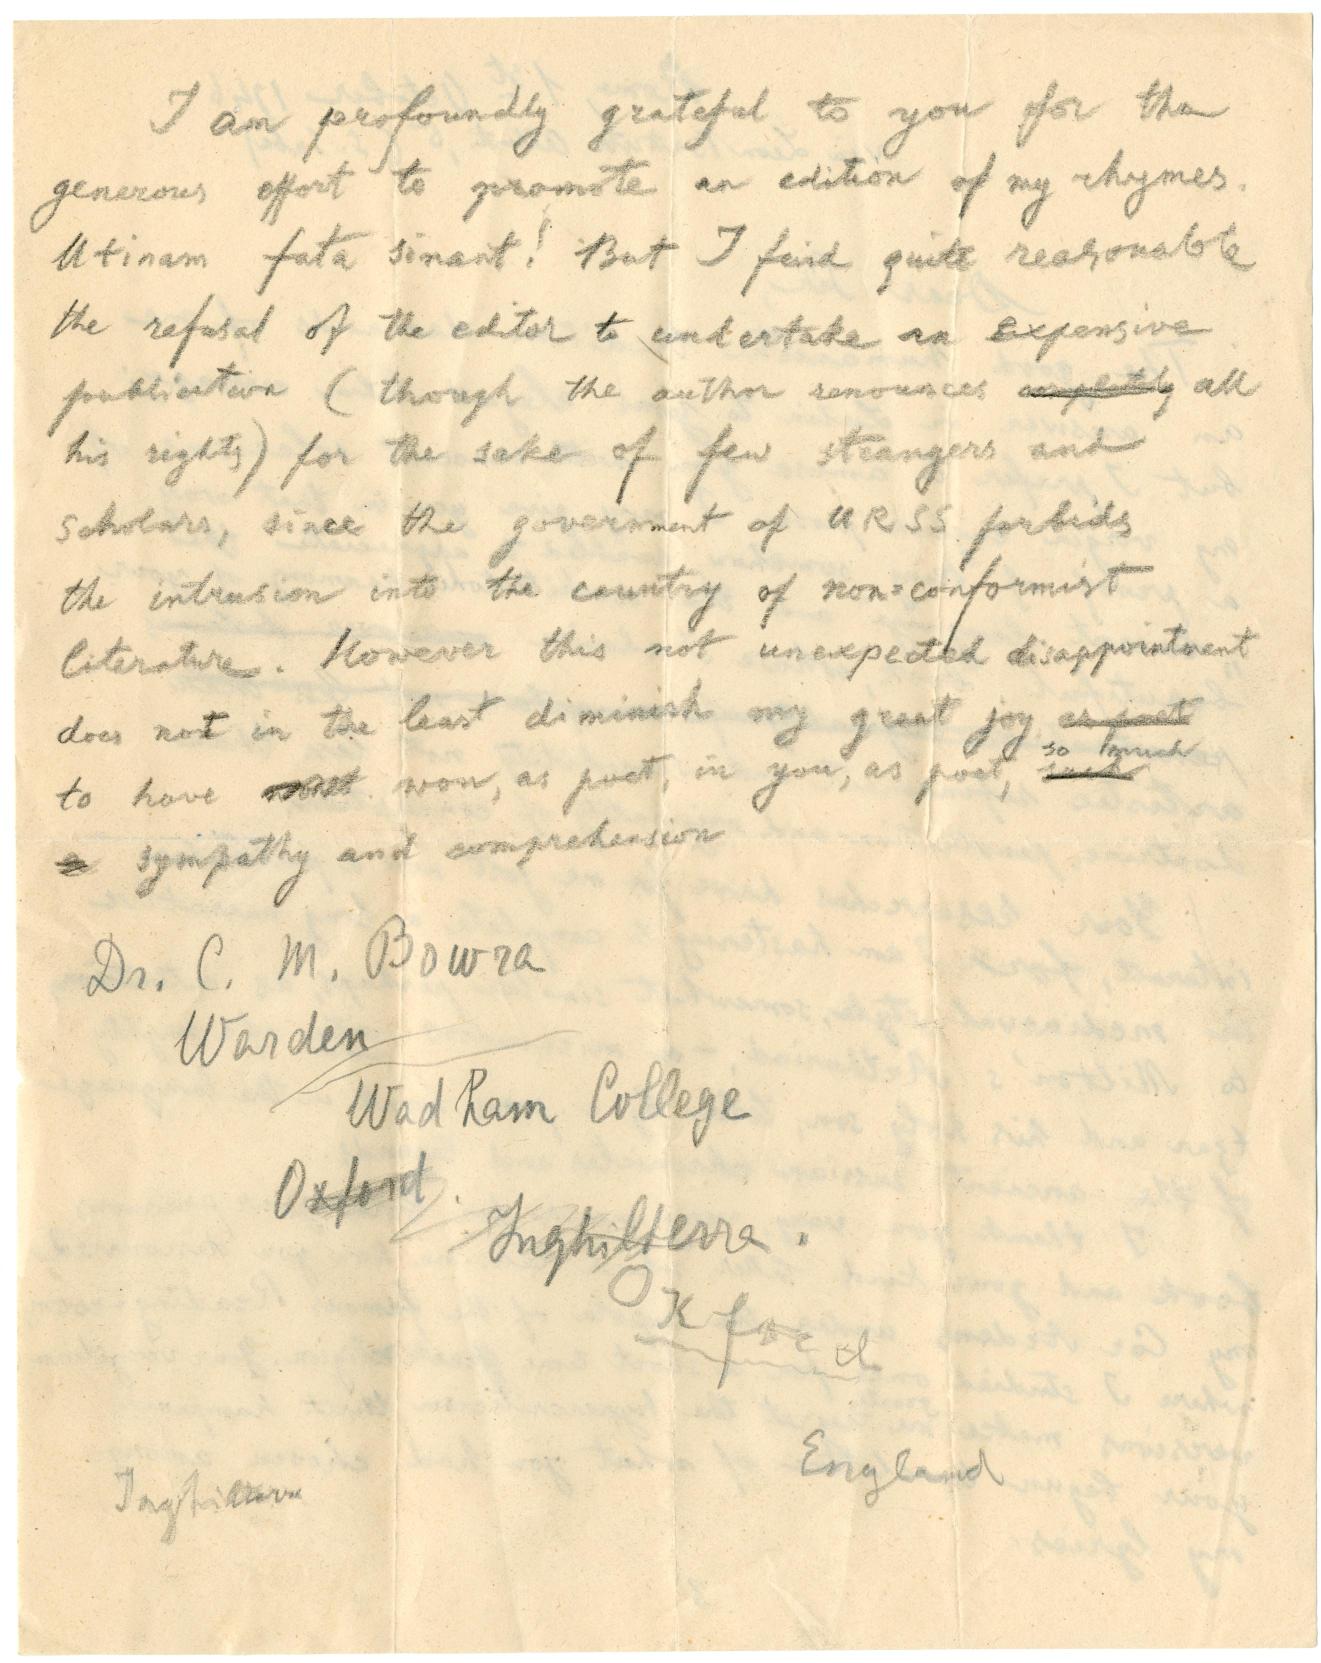 I am profoundly grateful to you for the
generous effort to promote an edition of my rhymes.
Utinam fata sinant! But I find quite reasonable
the refusal of the editor to undertake an expensive
publication (though the author renounces completely all
his rights) for the sake of few strangers and
scholars, since the government of URSS forbids
the intrusion into the country of non=conformist
literature. However this not unexpected disappointment
does not in the least diminish my great joy as poet
so much
to have won, as poet, in you, as poet, such
a sympathy and comprehension
Dr. C. M. Bowra
Warden
Wadham College
Oxford.
Inghilterra.
Oxford
England
Inghilterra